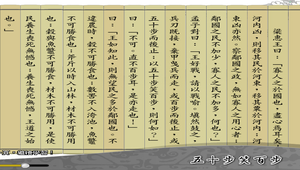 梁惠王曰：「寡人之於國也，盡心焉耳矣。
河內凶，則移其民於河東，移其粟於河內；河
東凶亦然。察鄰國之政，無如寡人之用心者；
鄰國之民不加少，寡人之民不加多，何也？」
孟子對曰：「王好戰，請以戰喻。填然鼓之，
兵刃既接，棄甲曳兵而走，或百步而後止，或
五十步而後止；以五十步笑百步，則何如？」
曰：「不可，直不百步耳，是亦走也！」
曰：「王如知此，則無望民之多於鄰國也。不
違農時，穀不可勝食也；數罟不入洿池，魚鼈
不可勝食也；斧斤以時入山林，材木不可勝用
也。穀與魚鼈不可勝食，材木不可勝用，是使
民養生喪死無憾也。養生喪死無憾，王道之始
也。」
五十步笑百步